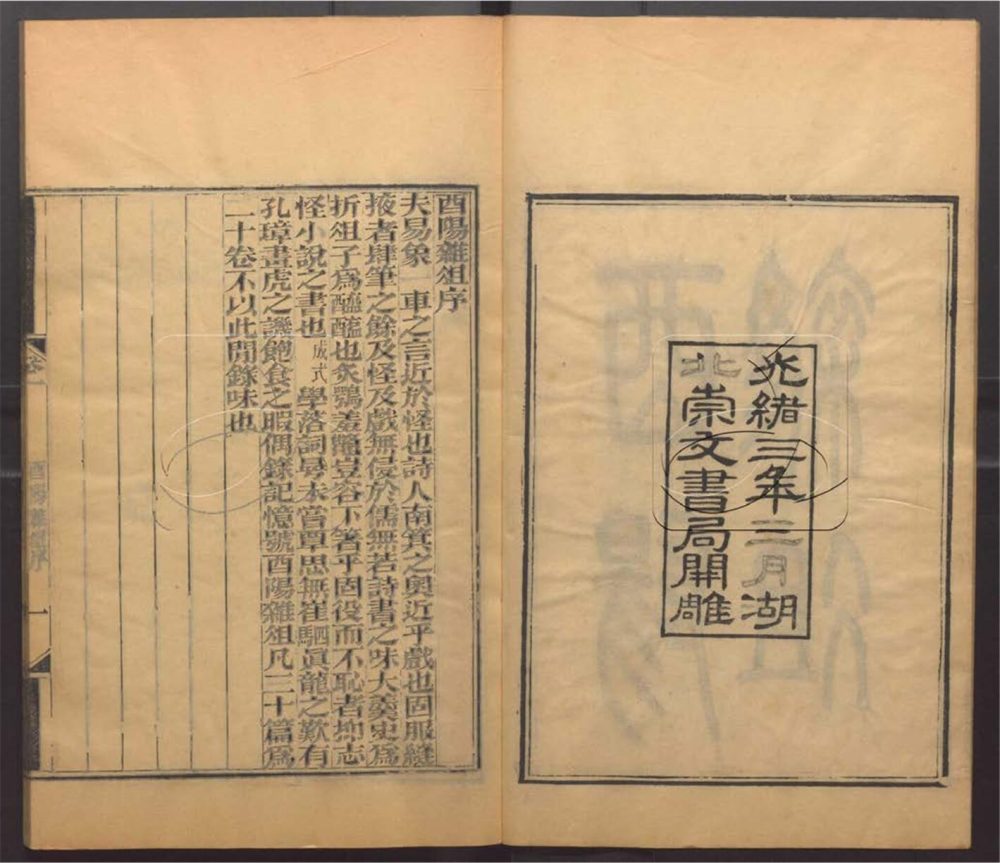 光緒三年三月湖
北崇文書局開雕
酉陽雜俎序
夫易象一車之言近於怪也詩人南箕之奧近乎戲也固服縫
掖者肆筆之餘及怪及戲無侵於儒無若詩書之味大羹史爲
折俎子爲醯醢也炙鴞羞鼈豈容下箸乎固役而不恥者抑志
怪小說之書也成式學落詞曼未嘗覃思無崔駰眞龍之歎有
孔璋畫虎之譏飽食之暇偶錄記憶號酉陽雜俎凡三十篇爲
二十卷不以此間錄味也
酉陽雜俎序
一